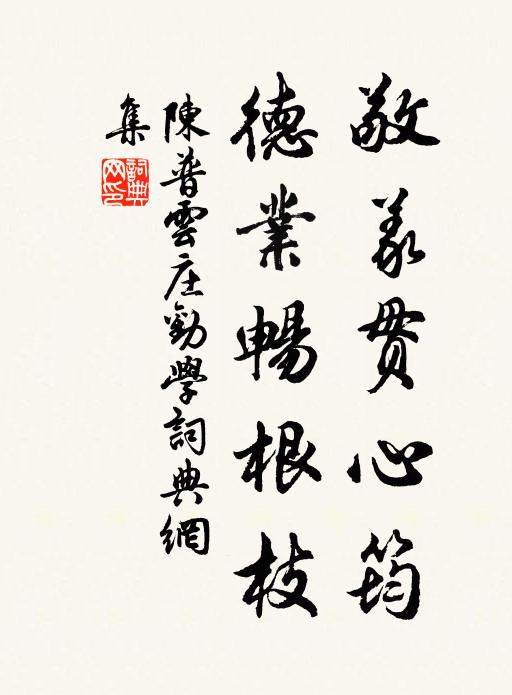 敬義貫心筠
德業暢根枝
陳普雲庄勸學詞典網
集
詞典網印